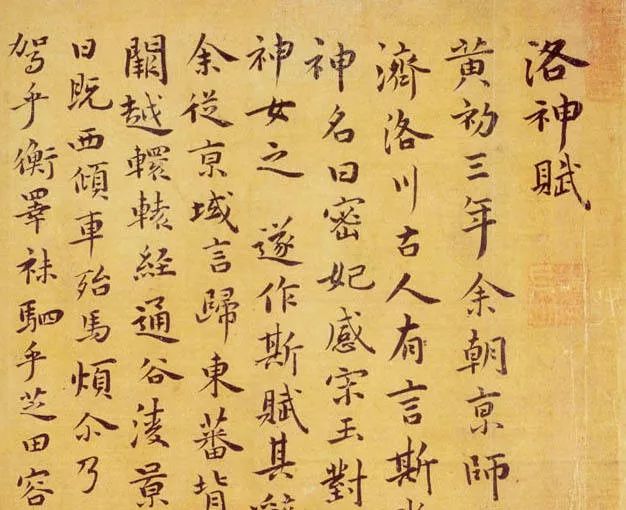 洛神賦
黄初三年余朝亰師
濟洛川古人有言斯
神名曰密妃感宋玉對
神女之 遂作斯賦其
余從亰域言歸東蕃背
闕越轘轅経通谷陵景
日既西傾車殆馬煩尒乃
駕乎衡睪秣駟乎芝田容